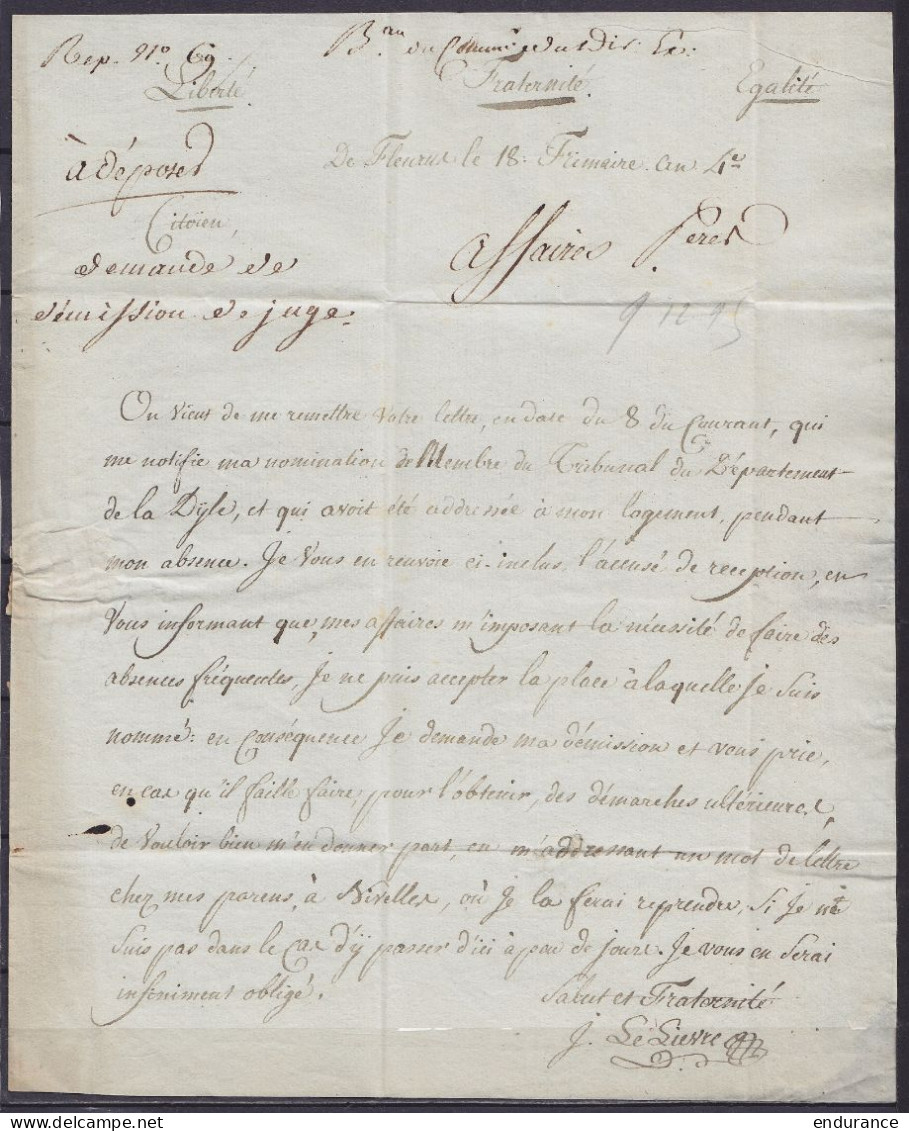 Rep. N° 69.
Bau du Comm.re du Dir. Ex:
Liberté
Fraternité.
Egalité
à déposer
De Fleurus le 18. Frimaire. an 4e
Citoïen,
affaires Perer
demande de
démission de juge.
9 12 95
On vient de me remettre votre lettre, en date du 8 du Courant, qui
me notifie ma nomination de Membre du Tribunal du Département
de la Dÿle, et qui avoit été addressée à mon logement, pendant
mon absence. Je vous en renvoie ci-inclus, l'accusé de reception, en
vous informant que, mes affaires m'imposant la nécessité de faire des
absences fréquentes, je ne puis accepter la place à laquelle je suis
nommé: en conséquence je demande ma démission et vous prie,
en cas qu'il faille faire, pour l'obtenir, des démarches ultérieures,
de vouloir bien m'en donner part, en m'addressant un mot de lettre
chez mes parens, à Nivelles, où je la ferai reprendre, si je ne
suis pas dans le cas d'ÿ passer d'ici à peu de jours. Je vous en serai
infiniment obligé.
Salut et Fraternité
J. Le Lievre
endurance